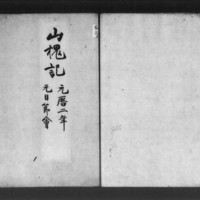 山槐記
元暦二年
元日節會